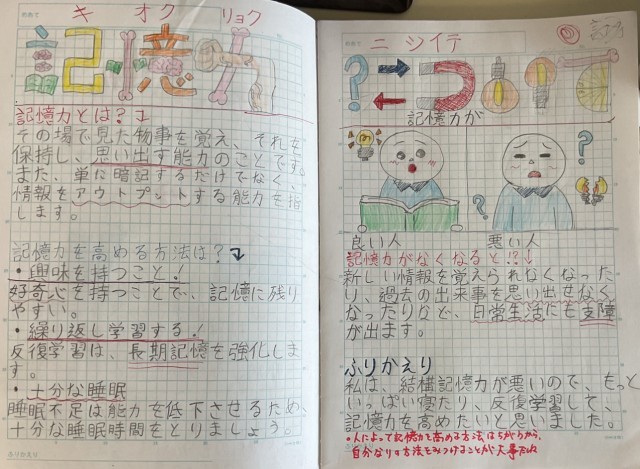 キオクリョク
記憶力
記憶力とは？
その場で見た物事を覚え、それを
保持し、思い出す能力のことです。
また、単に暗記するだけでなく、
情報をアウトプットする能力を指
します。
記憶力を高める方法は？
・興味を持つこと！
好奇心を持つことで、記憶に残り
やすい。
・繰り返し学習する！
反復学習は、長期記憶を強化しま
す。
・十分な睡眠
睡眠不足は能力を低下させるため、
十分な睡眠時間をとりましょう。
ふりかえり
めあて
ニツイテ
?
記憶力が
?
?
良い人 悪い人
記憶力がなくなると!?
新しい情報を覚えられなくなった
り、過去の出来事を思い出せなく
なったりなど、日常生活にも支障
が出ます。
ふりかえり
私は、結構記憶力が悪いので、もっと
いっぱい寝たり、反復学習して、
記憶力を高めたいと思いました。
・人によって記憶力を高める方法はちがうから、
自分なりの方法をみつけることが大事だね